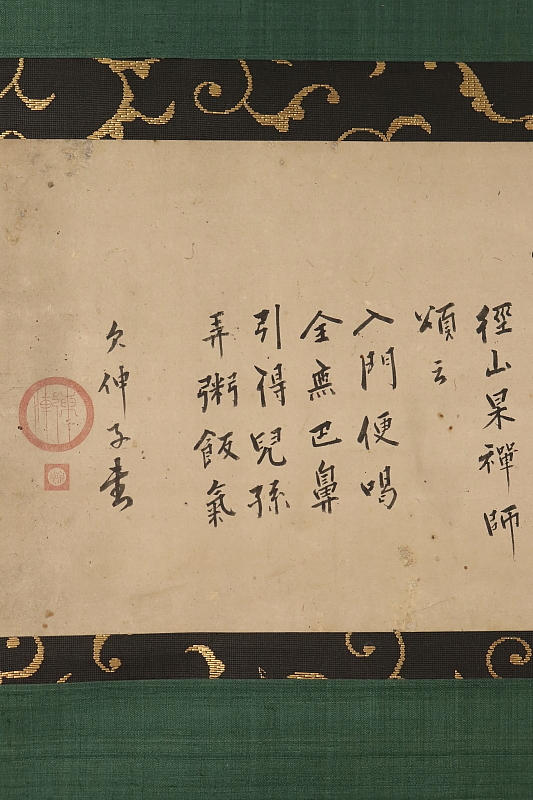 徑山杲禪師
頌云
入門便喝
全無巴鼻
引得兒孫
弄粥飯氣
欠伸子書